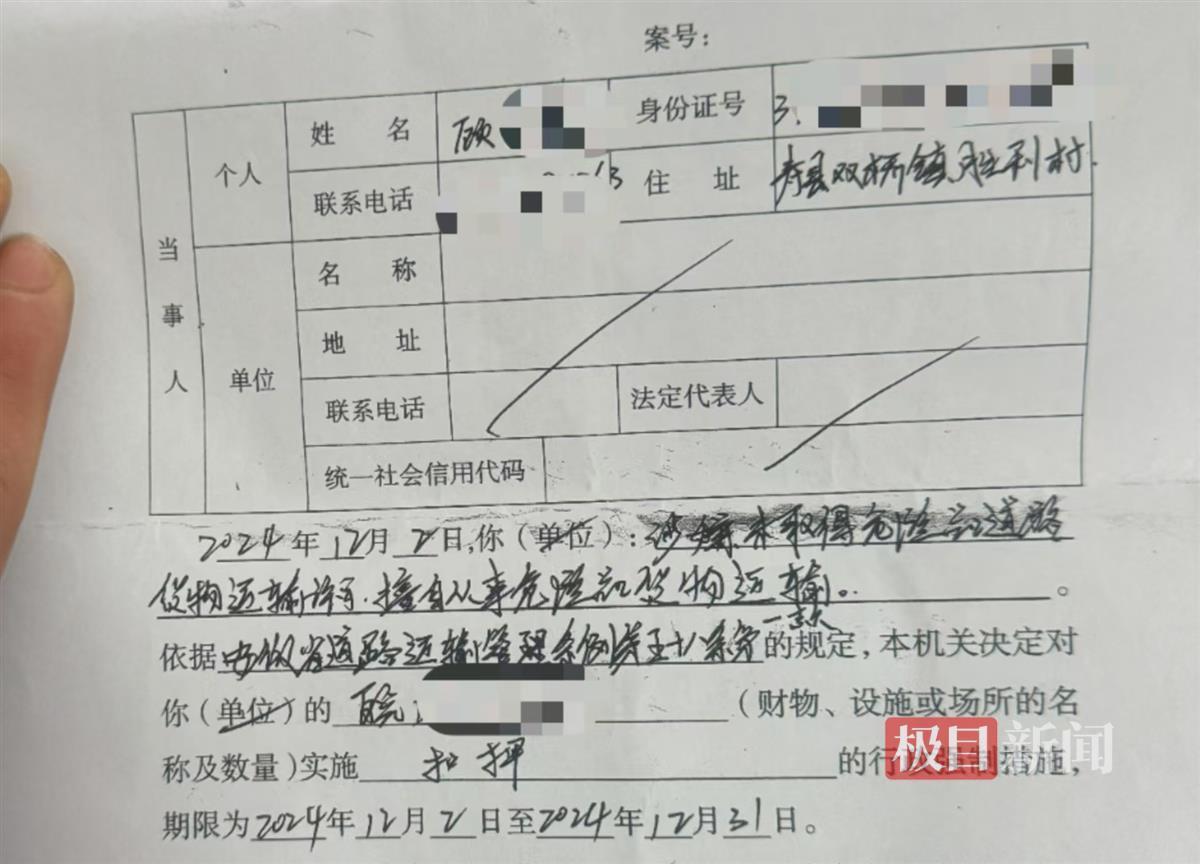 案号：
当事人
个人
姓 名 顾 身份证号 3.
联系电话 住 址 寿县双桥镇胜利村.
单位
名 称
地 址
联系电话 法定代表人
统一社会信用代码
2024年12月2日,你（单位）：涉嫌未取得危险品道路
货物运输许可.擅自从事危险品货物运输。。
一款
依据安徽省道路运输管理条例第五十八条第的规定，本机关决定对
你（单位）的 皖 （财物、设施或场所的名
称及数量）实施 扣押 的行政强制措施，
期限为2024年12月2日至2024年12月31日。
极目新闻